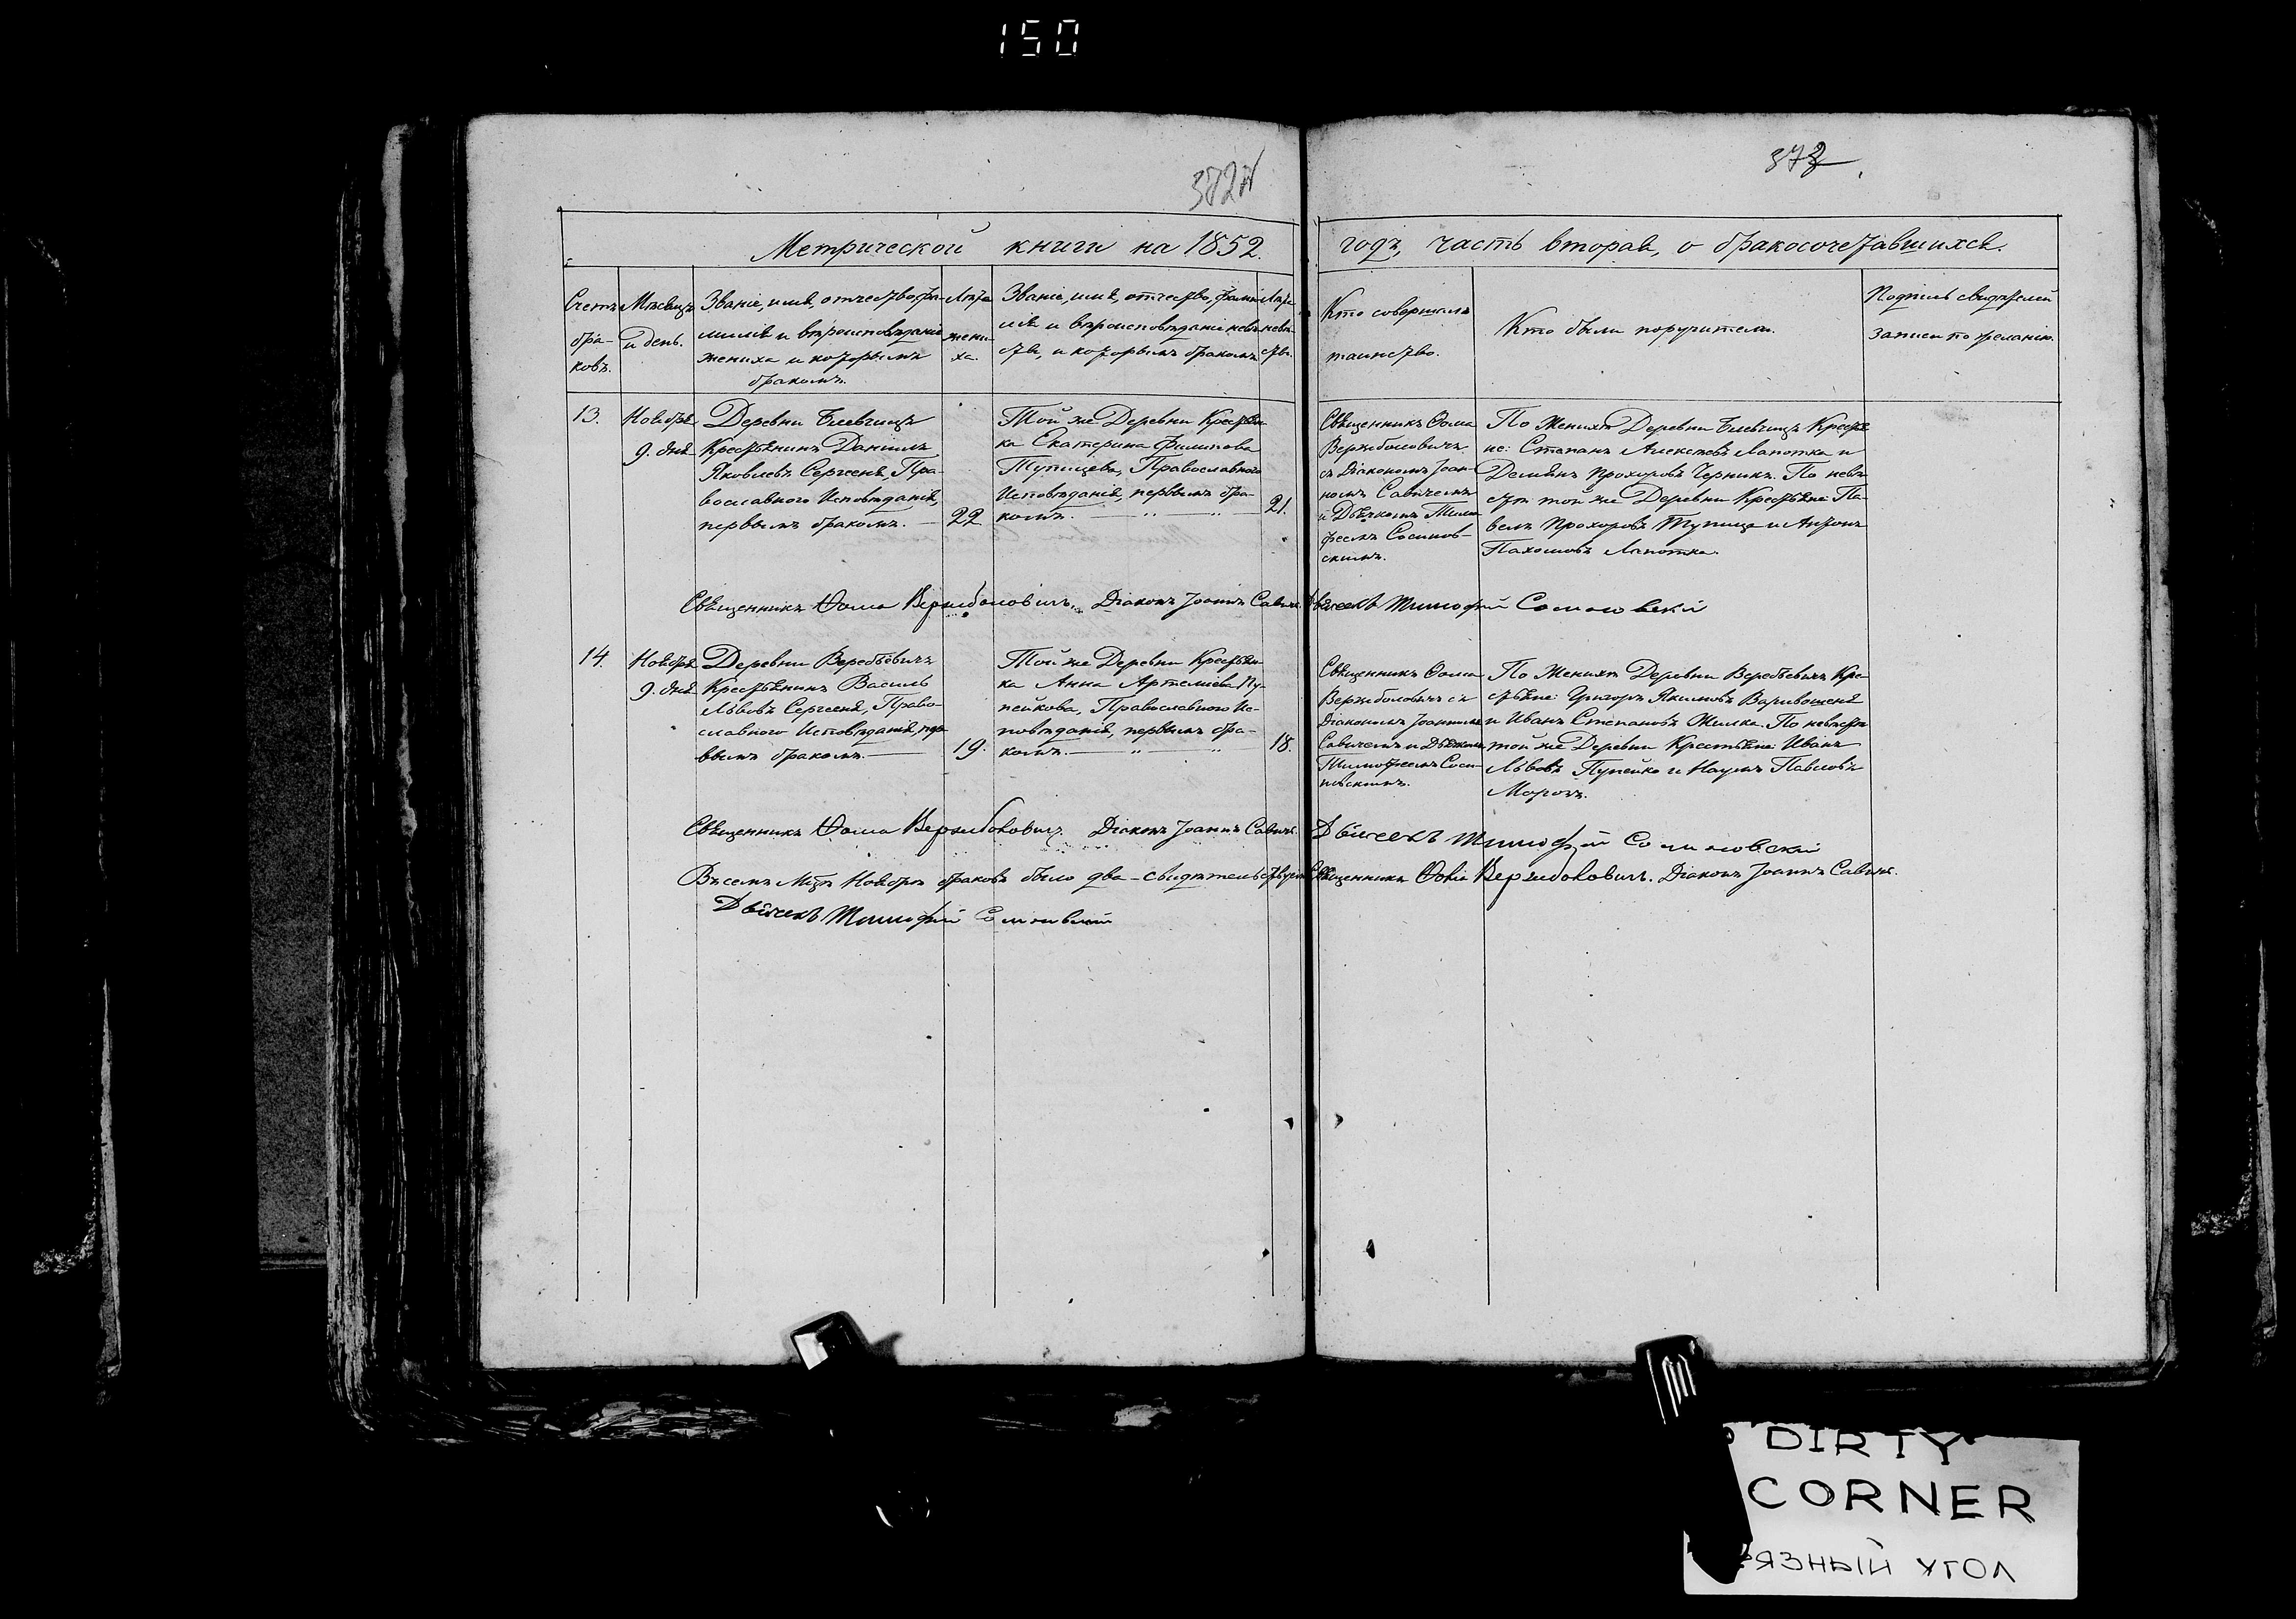 150
373
Метрической книги на 1852. годъ, часть вторая, о бракосочетавшихся.
Счетъ бра-
ковъ.
Мѣсяцъ
и день.
Званіе, имя, отчество, фа-
милія и вѣроисповѣданіе
жениха и которымъ
бракомъ.
Лѣта
жени-
ха.
Званіе, имя, отчество, фами
лія и вѣроисповѣданіе невѣ
сты, и которымъ бракомъ
Лѣта
невѣ-
сты.
Кто совершалъ
таинство.
Кто были поручители.
Подпись свидѣтелей
записи по желанію.
13.
Ноября
9. дня
Деревни
Крестьянинъ Даніилъ
Яковлевъ Сергееня, Пра-
вославнаго Исповѣданія,
первымъ бракомъ.
22
Той же Деревни Крестьян
ка Екатерина Филипова
Тупицева, Православнаго
Исповѣданія, первымъ бра-
комъ.
21.
Священникъ Ѳома
Вержболовичъ
съ Діакономъ Іоан-
номъ Савичемъ
и Дьячкомъ Тимо
феемъ Сосинов-
скимъ.
По Женихѣ Деревни Крестья
не: Степанъ Алексѣевъ Лапотка и
Демьянъ Прохоровъ Черникъ. По невѣ
стѣ той же Деревни Крестьяне: Па-
велъ Прохоровъ Тупица и Антонъ
Пахомовъ Лапотка.
Священникъ Ѳома Вержболовичъ. Діаконъ Іоаннъ Савичъ. Дьячекъ Тимофей
14.
Ноября
9. дня
Деревни Веребьевичъ
Крестьянинъ Василь
Львовъ Сергееня, Право-
славнаго Исповѣданія, пер
вымъ бракомъ.
19.
Той же Деревни Крестьян
ка Анна Артеміева Пу-
пейкова, Православнаго Ис-
повѣданія, первымъ бра-
комъ.
18.
Священникъ Ѳома
Вержболовичъ съ
Діакономъ Іоанномъ
Савичемъ и Дьячкомъ
Тимофеемъ Соси-
новскимъ.
По Женихѣ Деревни Веребьевичъ Кре-
стьяне: Григоръ Якимовъ
и Иванъ Степановъ Жилка. По невѣстѣ
той же Деревни Крестьяне: Иванъ
Львовъ Пупейко и Наумъ Павловъ
Морозъ.
Священникъ Ѳома Вержболовичъ. Діаконъ Іоаннъ Савичъ. Дьячекъ Тимофей
Въ семъ Мцѣ Ноябрѣ браковъ было два - свидѣтельствуемъ Священникъ Ѳома Вержболовичъ. Діаконъ Іоаннъ Савичъ.
Дьячекъ Тимофей
DIRTY
CORNER
РЯЗНЫЙ УГОЛ